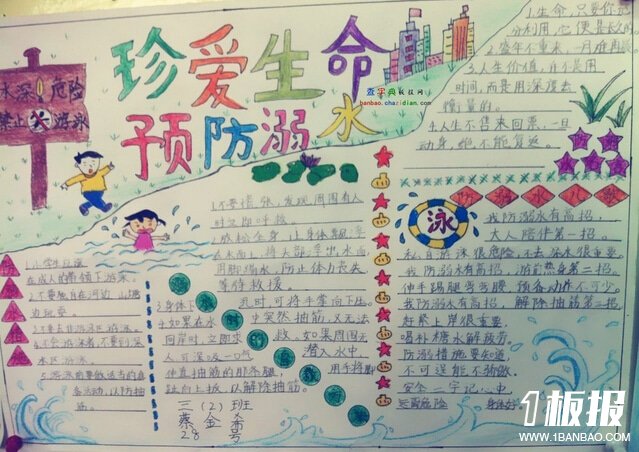 珍爱生命
预防溺水
查字典板报网
banbao.chazidian.com
水深 危险
禁止 游泳
1.生命,只要你充
分利用,它便是长久的
2.盛年不重来,一日难再晨
3.人生价值,并不是用
时间,而是用深度去
衡量的。
4.人生不售来回票,一旦
动身,绝不能复返。
防溺水儿歌
泳
我防溺水有高招,
大人陪伴第一招。
私自游泳很危险,不去深水很重要。
我防溺水有高招,游前热身第二招。
伸手踢腿弯弯腰,预备动作不可少。
我防溺水有高招,解除抽筋第三招。
赶紧上岸很重要,
喝补糖水解疲劳。
防溺措施要知道
不可逞能不弥敏
安全二字记心中
远离危险 身体好
1.不要慌张,发现周围有人
时立即呼救。
2.放松全身,让身体飘浮
在水面上,将头部浮出水面
用脚踢水,防止体力丧失
等待救援。
3.身体下沉时,可将手掌向下压
4.如果在水中突然抽筋,又无法
回岸时,立即求救,如果周围无
人可深吸一口气潜入水中
伸直抽筋的那条腿,用手将脚
趾向上扳,以解除抽筋。
在成人的带领下游泳。
2.不要独自在河边、山塘
边玩耍。
3.不要去非游泳区游泳。
4.不会游泳者,不要到深
水区游泳。
5.游泳前要做适当的准
备活动,以防抽
筋。
三(2)班
蔡金希
28号
1板报
WWW.1BANBAO.COM